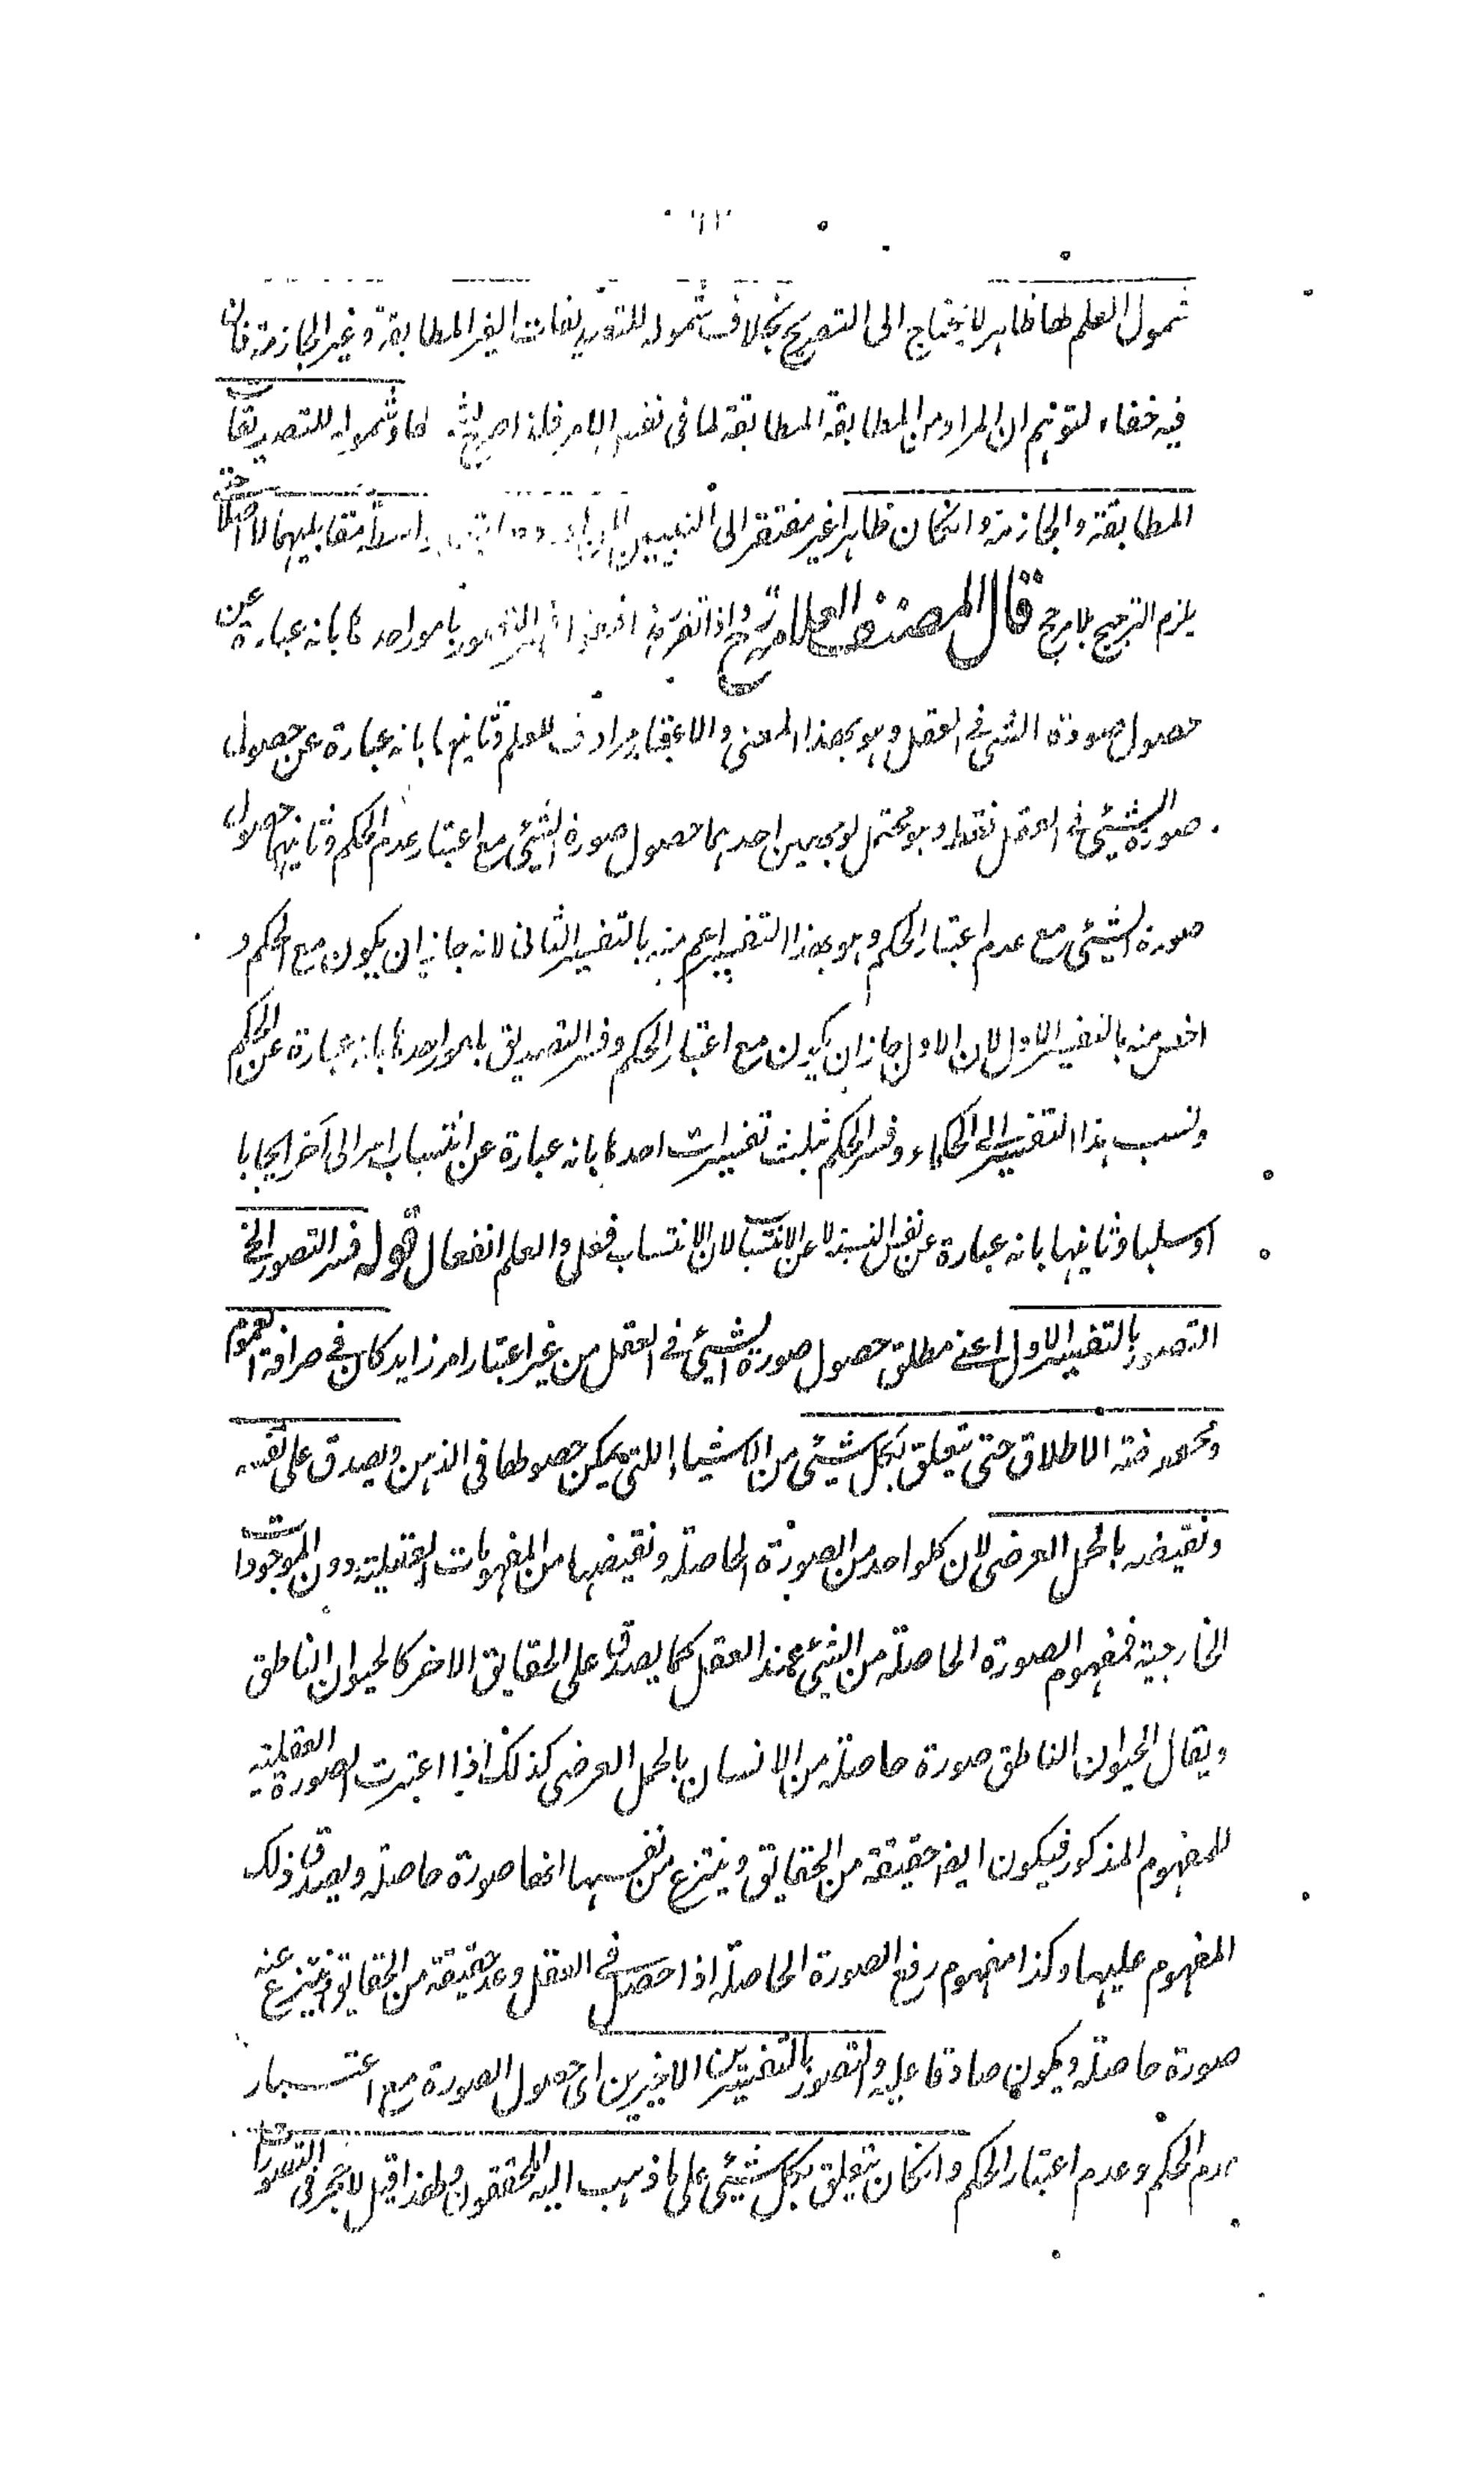 ١٢
شمول العلم لها ظاهر لا يحتاج الى التصريح بخلاف شموله للتصديقات الغير المطابقة وغير الجازمة فان
فيه خفاء لتوهم ان المراد من المطابقة المطابقة لما فى نفس الامر فلذا صرح به وشموله للتصديقات
المطابقة والجازمة وانكان ظاهرا غير مفتقر الى التبيين مقابليهما لا اصلا حتى
يلزم الترجيح بلا مرجح قال المصنف العلامة رح واذا تقرر هذا فسر التصور بامور احدها بانه عبارة عن
حصول صورة الشئ فى العقل وهو بهذا المعنى والاعتبار مرادف للعلم وثانيها بانه عبارة عن حصول
صورة الشيئ فى العقل فقط وهو محتمل لوجهين احدهما حصول صورة الشيئ مع اعتبار عدم الحكم وثانيهما حصول
صورة الشيئى مع عدم اعتبار الحكم وهو بهذا التفسير اعم منه بالتفسير الثانى لانه جاز ان يكون مع الحكم و
اخص منه بالتفسير الاول لان الاول جاز ان يكون مع اعتبار الحكم وفسر التصديق بامور احدها بانه عبارة عن الحكم
ونسب هذا التفسير الى الحكماء وفسر الحكم ثلث تفسيرات احدها بانه عبارة عن انتساب امر الى آخر ايجابا
او سلبا وثانيها بانه عبارة عن نفس النسبة لا عن الانتساب لان الانتساب فعل والعلم انفعال قوله فسر التصور الخ
التصور بالتفسير الاول اعنى مطلق حصول صورة الشيئ فى العقل من غير اعتبار امر زايد كان فى صرافة العموم
ومحوضة الاطلاق حتى يتعلق بكل شيئى من الاشياء اللتى يمكن حصولها فى الذهن ويصدق على نفسه
ونقيضه بالحمل العرضى لان كلواحد من الصورة الحاصلة ونقيضها من المفهومات العقلية دون الموجودات
الخارجية فمفهوم الصورة الحاصلة من الشيئ عند العقل كما يصدق على الحقايق الاخر كالحيوان الناطق
ويقال الحيوان الناطق صورة حاصلة من الانسان بالحمل العرضى كذلك اذا اعتبرت الصورة العقلية
للمفهوم المذكور فيكون ايضا حقيقة من الحقائق وينتزع من نفسها انها صورة حاصلة ويصدق ذلك
المفهوم عليها وكذا مفهوم رفع الصورة الحاصلة اذا حصل فى العقل وعد حقيقة من الحقايق وينتزع عنه
صورة حاصلة ويكون صادقا عليه والتصور بالتفسيرين الاخيرين اى حصول الصورة مع اعتبار
عدم الحكم وعدم اعتبار الحكم وانكان يتعلق بكل شيئى على ما ذهب اليه المحققون ولهذا قيل لا حجر فى التصورات